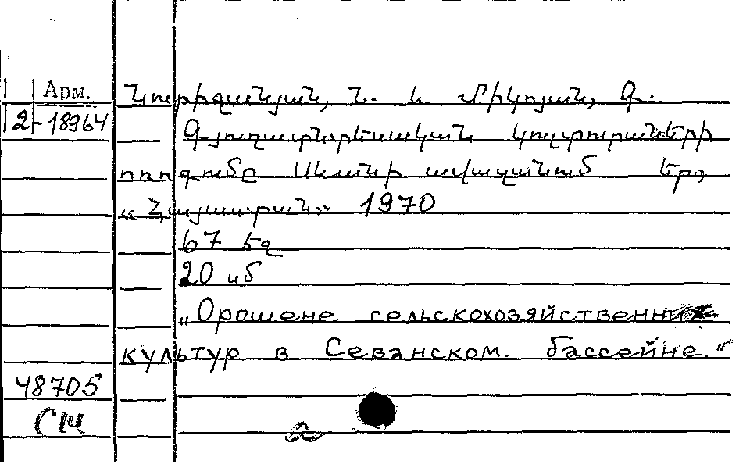 Арм.
2-18964
Նուրիջանյան, Ն. և Միկոյան, Գ.
Գյուղատնտեսական կուլտուրաների
ոռոգումը Սևանի ավազանում Եր.,
«Հայաստան» 1970
67 եզ
20 սմ
„Орошене сельскохозяйственных
культур в Севанском. бассейне."
48705
СШ